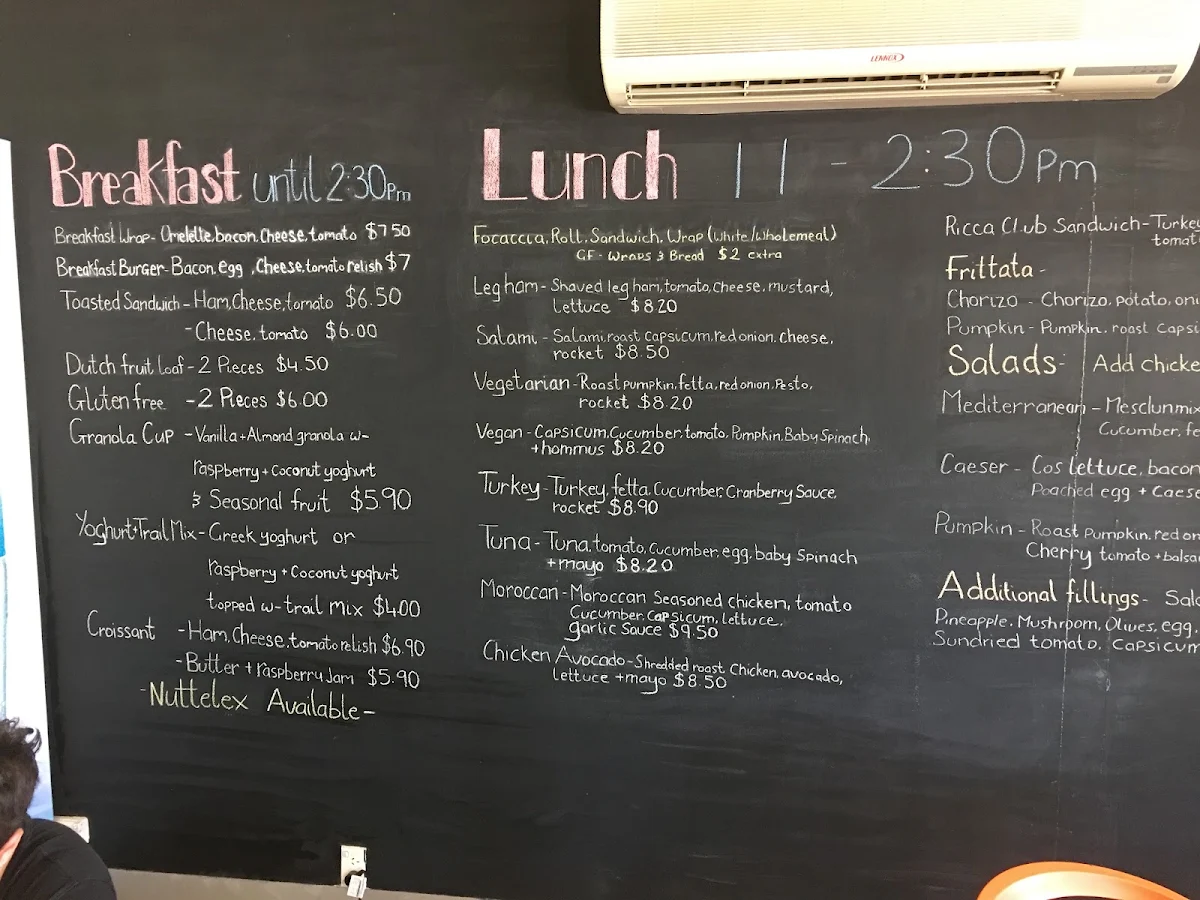 LENNOX
Breakfast until 2:30pm
Breakfast Wrap- Omelette, bacon, Cheese, tomato $7 50
Breakfast Burger- Bacon, egg, Cheese, tomato relish $7
Toasted Sandwich - Ham, Cheese, tomato $6.50
- Cheese, tomato $6.00
Dutch fruit loaf - 2 Pieces $4.50
Gluten free - 2 Pieces $6.00
Granola Cup - Vanilla + Almond granola w-
raspberry + Coconut yoghurt
& Seasonal fruit $5.90
Yoghurt+Trail Mix - Greek yoghurt or
raspberry + Coconut yoghurt
topped w- trail mix $4.00
Croissant - Ham, Cheese, tomato relish $6.90
- Butter + raspberry Jam $5.90
- Nuttelex Available -
Lunch 11 - 2:30pm
Focaccia, Roll, Sandwich, Wrap (White/Wholemeal)
GF- Wraps & Bread $2 extra
Leg ham - Shaved leg ham, tomato, Cheese, mustard,
lettuce $8.20
Salami - Salami, roast capsicum, red onion, cheese,
rocket $8.50
Vegetarian - Roast pumpkin, fetta, red onion, Pesto,
rocket $8.20
Vegan - Capsicum, Cucumber, tomato, Pumpkin, Baby Spinach
+ hommus $8.20
Turkey - Turkey, fetta, Cucumber, Cranberry Sauce,
rocket $8.90
Tuna - Tuna, tomato, cucumber, egg, baby Spinach
+ mayo $8.20
Moroccan - Moroccan Seasoned chicken, tomato
Cucumber, Capsicum, lettuce,
garlic Sauce $9.50
Chicken Avocado - Shredded roast Chicken, avocado,
lettuce + mayo $8.50
Ricca Club Sandwich - Turkey
tomat
Frittata -
Chorizo - Chorizo, potato, oni
Pumpkin - Pumpkin, roast capsi
Salads - Add chicke
Mediterranean - Mesclun mix
Cucumber, fe
Caeser - Cos lettuce, bacon
Poached egg + Caes
Pumpkin - Roast pumpkin, red on
Cherry tomato + balsa
Additional fillings - Sala
Pineapple, Mushroom, Olives, egg,
Sundried tomato, Capsicum